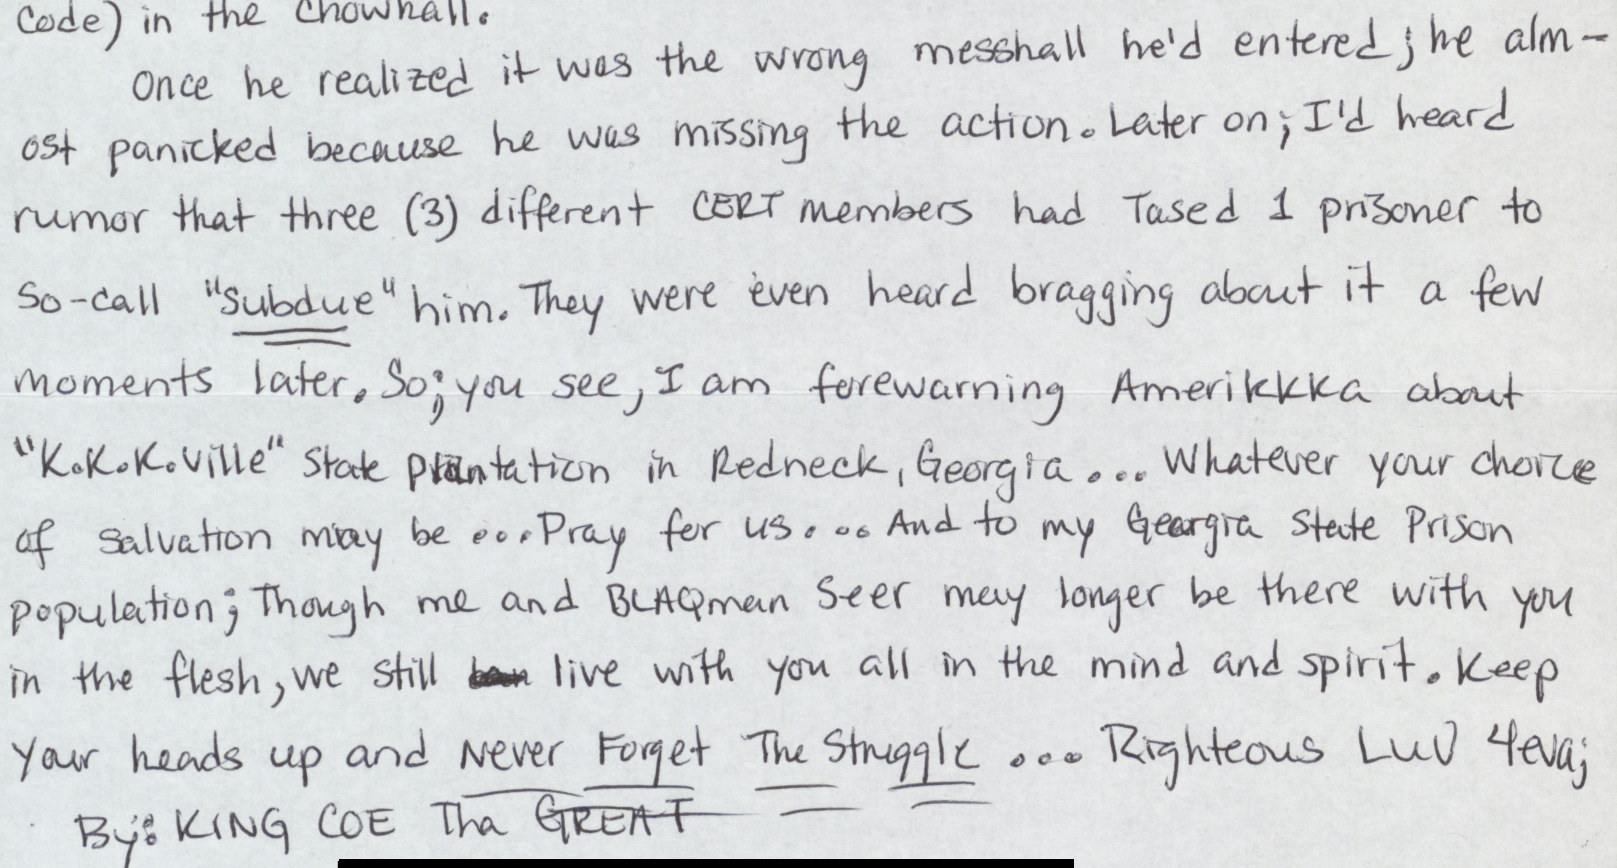 Code) in the Chowhall.
Once he realized it was the wrong messhall he'd entered; he alm-
ost panicked because he was missing the action. Later on; I'd heard
rumor that three (3) different CERT members had Tased 1 prisoner to
So-call "Subdue" him. They were even heard bragging about it a few
moments later. So; you see, I am forewarning Amerikkka about
"K.K.K.ville" State plantation in Redneck, Georgia... Whatever your choice
of salvation may be ... Pray for us... And to my Georgia State Prison
population; Though me and BLAQman Seer may longer be there with you
in the flesh, we still live with you all in the mind and spirit. Keep
your heads up and Never Forget The Struggle ... Righteous Luv 4eva;
By: KING COE Tha GREAT